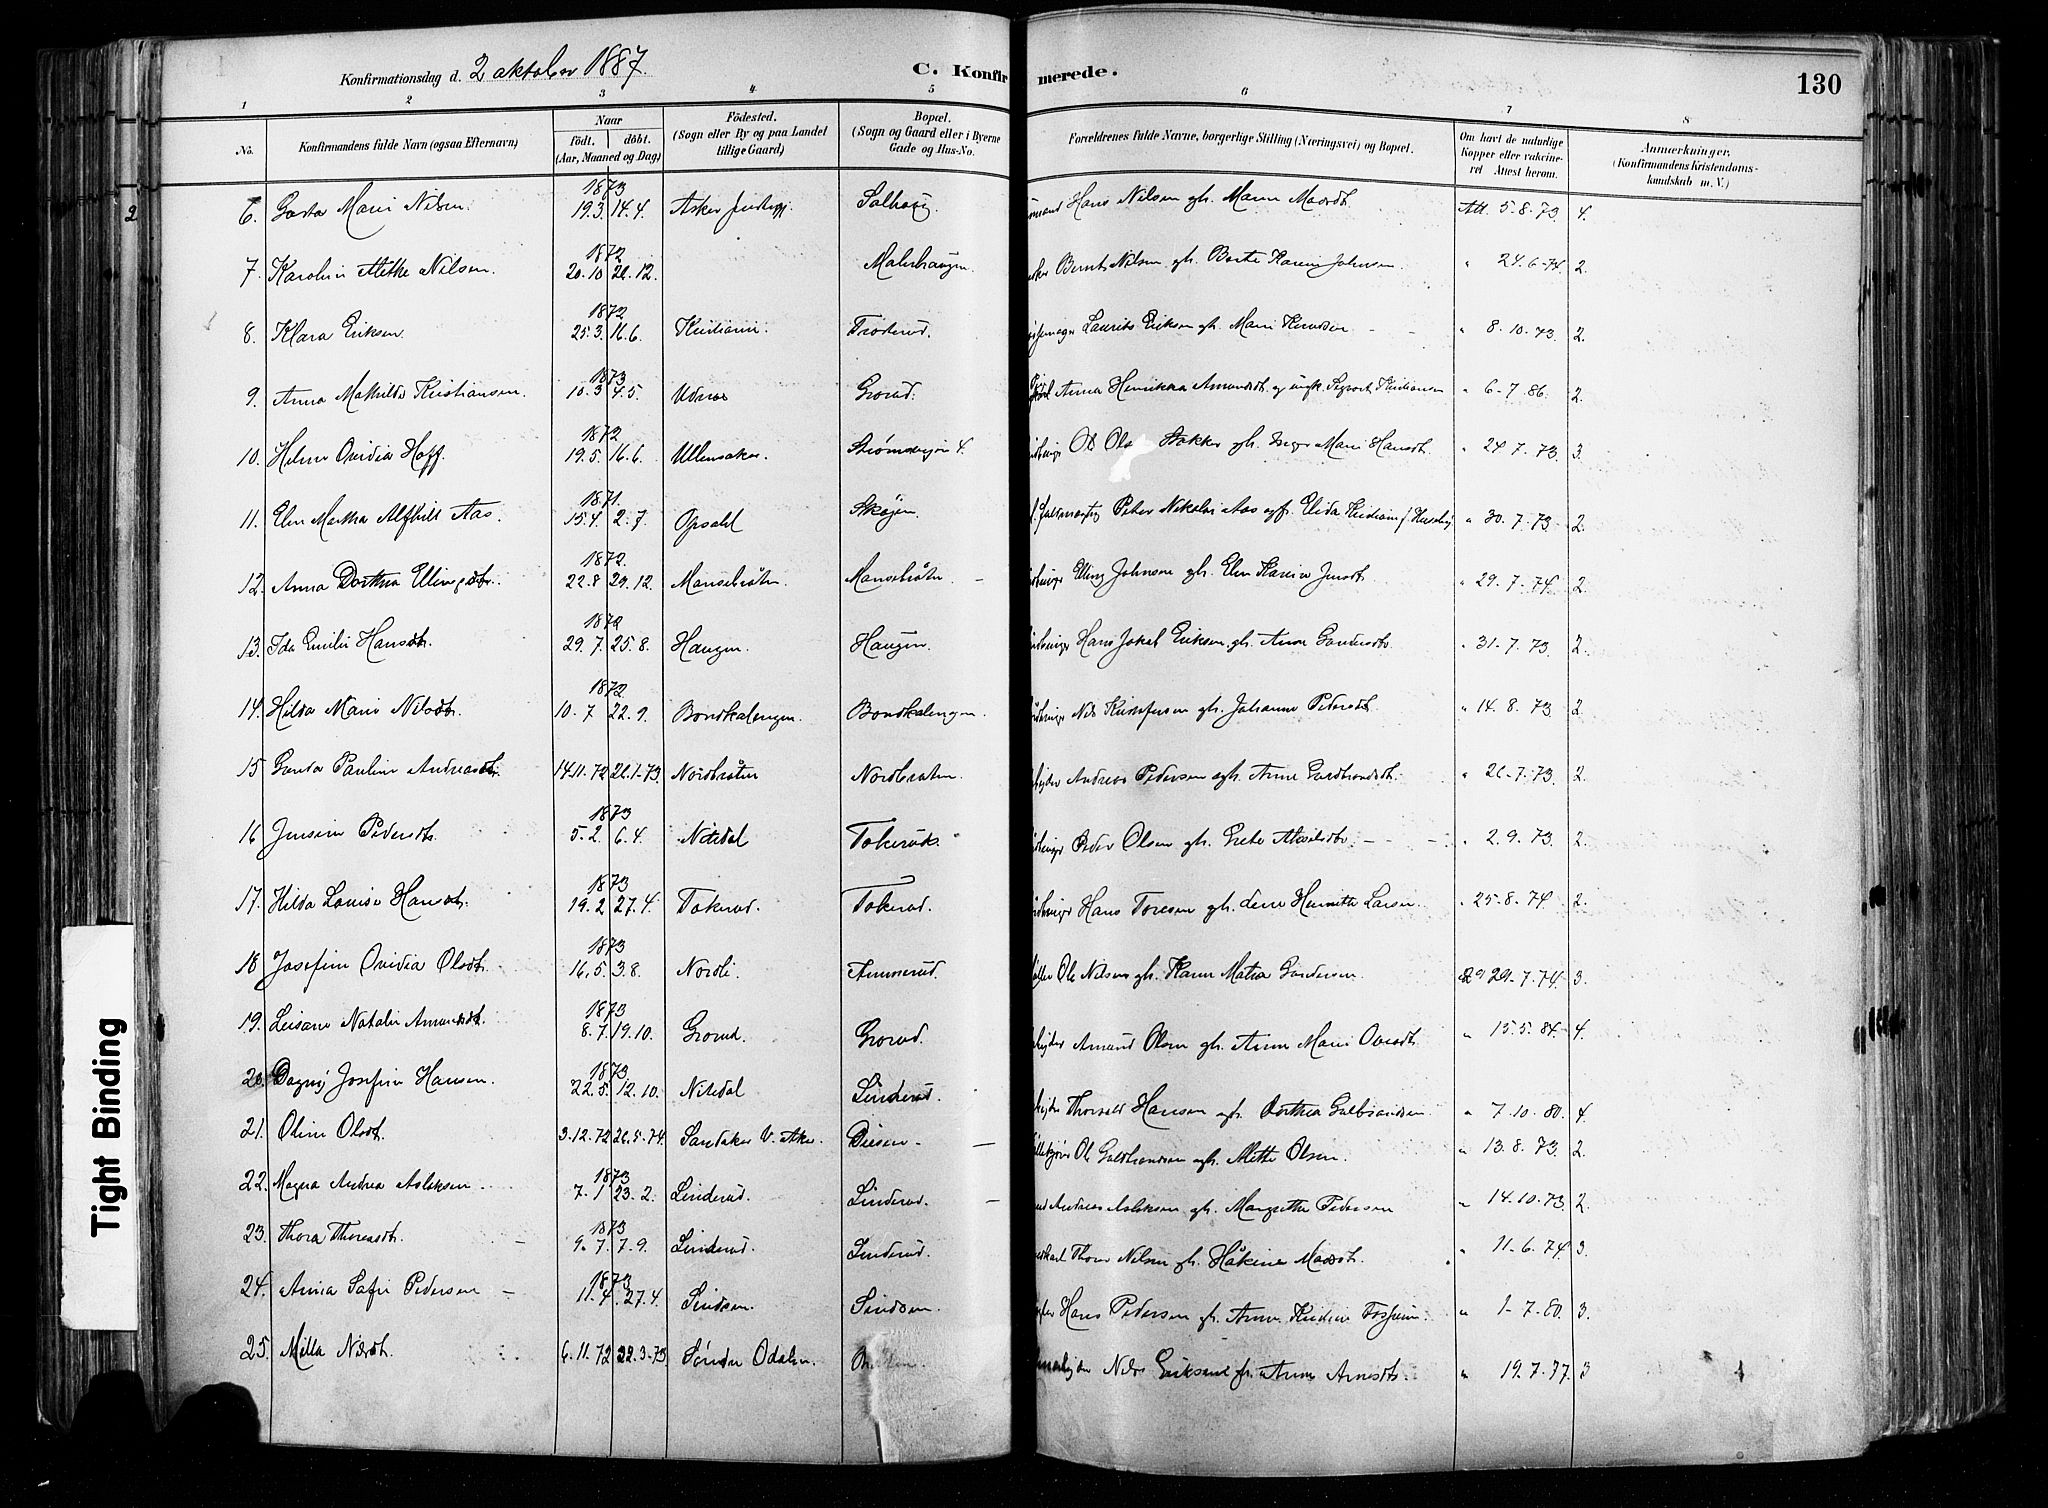 Konfirmationsdag d. 2 oktober 1887.
C. Konfirmerede.
130
1 2 3 4 5 6 7 8
No.
Konfirmandens fulde Navn (ogsaa Efternavn)
Naar
født. døbt.
(Aar, Maaned og Dag)
Fødested.
(Sogn eller By og paa Landet
tillige Gaard)
Bopæl.
(Sogn og Gaard eller i Byerne
Gade og Hus-No.
Forældrenes fulde Navne, borgerlige Stilling (Næringsvei) og Bopæl.
Om havt de naturlige
Kopper eller vakcine-
ret Attest herom.
Anmærkninger,
(Konfirmandens Kristendoms-
kundskab m. V.)
2
6. Marie Nilsen 1873 19.3 14.4. Asker Solhaug Hans Nilsen gh. Maren Madsdt. Att. 5.8.73. 4.
7. Karolin Methe Nilsen. 1872 20.10 26.12. Malerhaugen Bernt Nilsen gh. Berte Karin Johnsen. " 24.6.74. 2.
8. Klara Eriksen. 1872 25.3 16.6. Kristiania. Trosterud. Laurits Eriksen gh. Marie Knudsen - - " 8.10.73. 2.
9. Anna Mathilde Kristiansen. 1873 10.3 4.5. Udnæs Grorud. Anna Henrikka Amundsdt. og ungk. Kristiansen " 6-7.86. 2.
10. Helene Ovidia Hoff. 1872 19.5. 16.6. Ullensaker. Strømsveien 4. Ole Stokker gh. Inger Marie Hansdt. " 24.7.73. 3.
11. Elen Martha Alfhild Aas. 1871. 15.4. 2.7. Opsahl Skøjen. Peter Nikolai Aas og f. Elida Kristiane f. Huseby " 30.7.73. 2.
12. Anna Dorthea Ellingsdtr. 1872. 22.8 29.12. Mansebråten. Mansebråten - Elling Johnsen gh. Elen Karine Jensdt. " 29.7.74. 2.
13. Ida Emilie Hansdt. 1872 29.7. 25.8. Haugen. Haugen. Hans Jakob Eriksen gh. Anne Gundersdt. " 31.7.73. 2.
14. Hilda Marie Nilsdt. 1872. 10.7 22.9. Bondkalengen. Bondkalengen. Nils Kristofersen gh. Johanne Pedersdt. " 14.8.73 2.
15 Pauline Andreasdt. 14.11.72 26.1-73. Nordbråten Nordbraten. Andreas Pedersen gh. Anne Guldbrandsdt. " 26-7.73. 2.
16 Jensine Pedersdt. 1873 5.2 6.4. Nitedal Tokerud. Peder Olsen gh. Grete Akselsdt. - - " 2.9.73. 2.
17. Hilda Louise Hansdt. 1873 19.2 27.4. Tokerud. Tokerud. Hans Toresen gh. Henriette Larsen. " 25-8.74. 2.
18 Josefine Ovidia Olsdt. 1873 16.5. 3.8. Nordli. Ammerud. Ole Nilsen gh. Karen Mathea Gundersen. 29-7.74. 3.
19. Natalie Amundsdt. 1873 8.7. 19.10. Grorud. Grorud. Amund Olsen gh. Anne Marie " 15.5.84- 4.
20. Dagny Josefine Hansen. 1873 22.5. 12.10. Nitedal Linderud. Thorvald Hansen gh. Dorthea Gulbrandsen " 7.10.80. 4.
21. Oline Olsdt. 3.12.72 26.5.74. Sandaker V. Aker. Disen - Ole Guldbrandsen gh. Mette Olsen. " 13.8.73. 2.
22. Magna Andrea Aslaksen. 1873 7.1 23.2. Linderud. Linderud. - Andreas Aslaksen gh. Margrethe Pedersen " 14.10.73. 2.
23. Thora Thoresdt. 1873 9.7. 7.9. Linderud. Linderud. Thore Nilsen gh. Håkine Madsdt. " 11-6.74. 3.
24. Anna Sofie Pedersen - 1873 11.4. 27.4. Sindsen. Sindsen. Hans Pedersen gh. Anne Kristine Fossum. " 1-7-80. 3.
25. Milla Nilsdt. 6.11.72 22.3-73. Søndre Odalen. Nils Eriksen gh. Anne Arnesdt. " 19.7.77. 3
Tight Binding